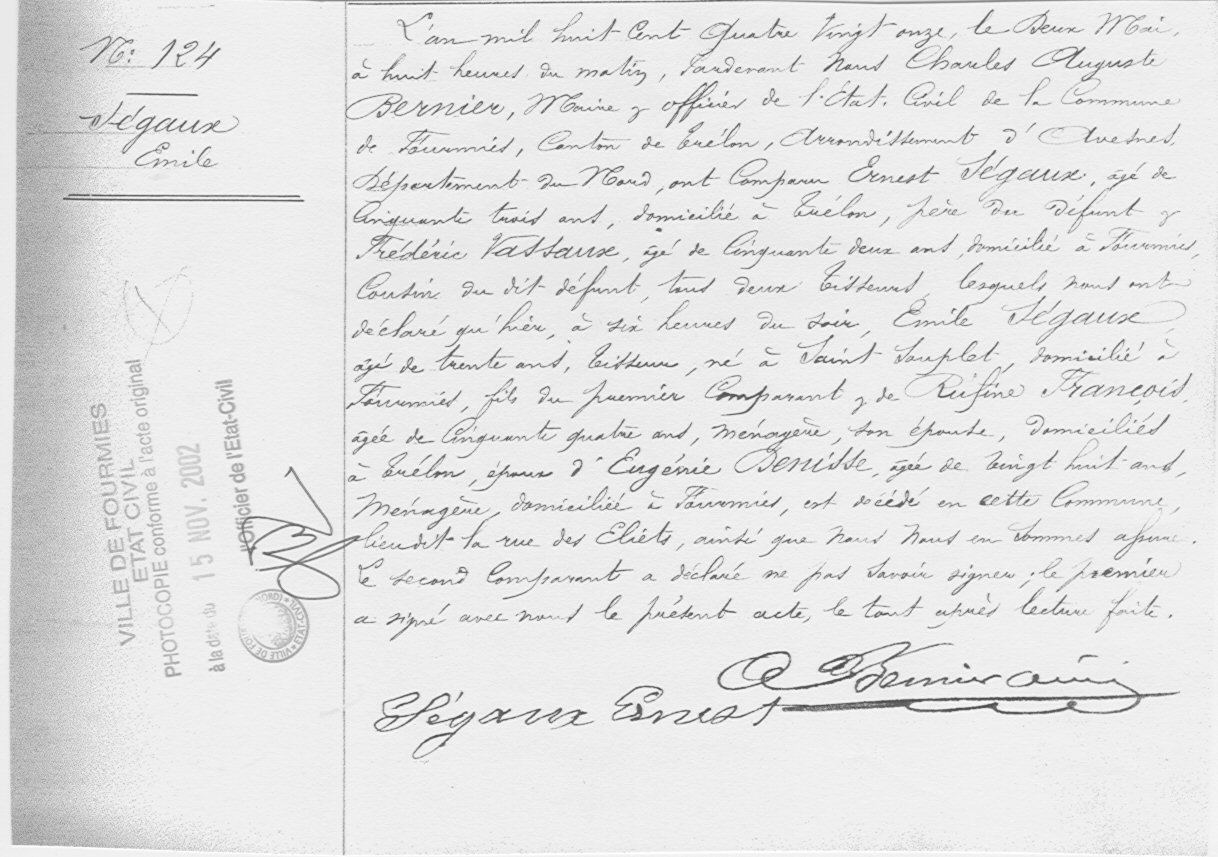 N: 124
Ségaux
Emile
L'an mil huit Cent Quatre Vingt onze, le Deux Mai,
à huit heures du matin, Pardevant Nous Charles Auguste
Bernier, Maire & officier de l'Etat. Civil de la Commune
de Fourmies, Canton de Trélon, Arrondissement d'Avesnes,
Département du Nord, ont Comparu Ernest Ségaux, âgé de
Cinquante trois ans, domicilié à Trélon, père du défunt &
Frédéric Vassaux, âgé de Cinquante deux ans, domicilié à Fourmies,
Cousin du dit défunt, tous deux tisseurs, lesquels nous ont
déclaré qu'hier, à six heures du soir, Emile Ségaux,
âgé de trente ans, tisseur, né à Saint Souplet, domicilié à
Fourmies, fils du premier Comparant & de Rufine François,
âgée de Cinquante quatre ans, ménagère, son épouse, domiciliés
à Trélon, époux d'Eugénie Denisse, âgée de Vingt huit ans,
Ménagère, domiciliée à Fourmies, est décédé en cette Commune,
lieudit la rue des Eliets, ainsi que Nous Nous en sommes assuré.
Le second Comparant a déclaré ne pas savoir signer, le premier
a signé avec nous le présent acte, le tout après lecture faite.
Bernier
Ségaux Ernest
VILLE DE FOURMIES
ETAT CIVIL
PHOTOCOPIE conforme à l'acte original
à la date du 15 NOV. 2002
l'Officier de l'Etat-Civil